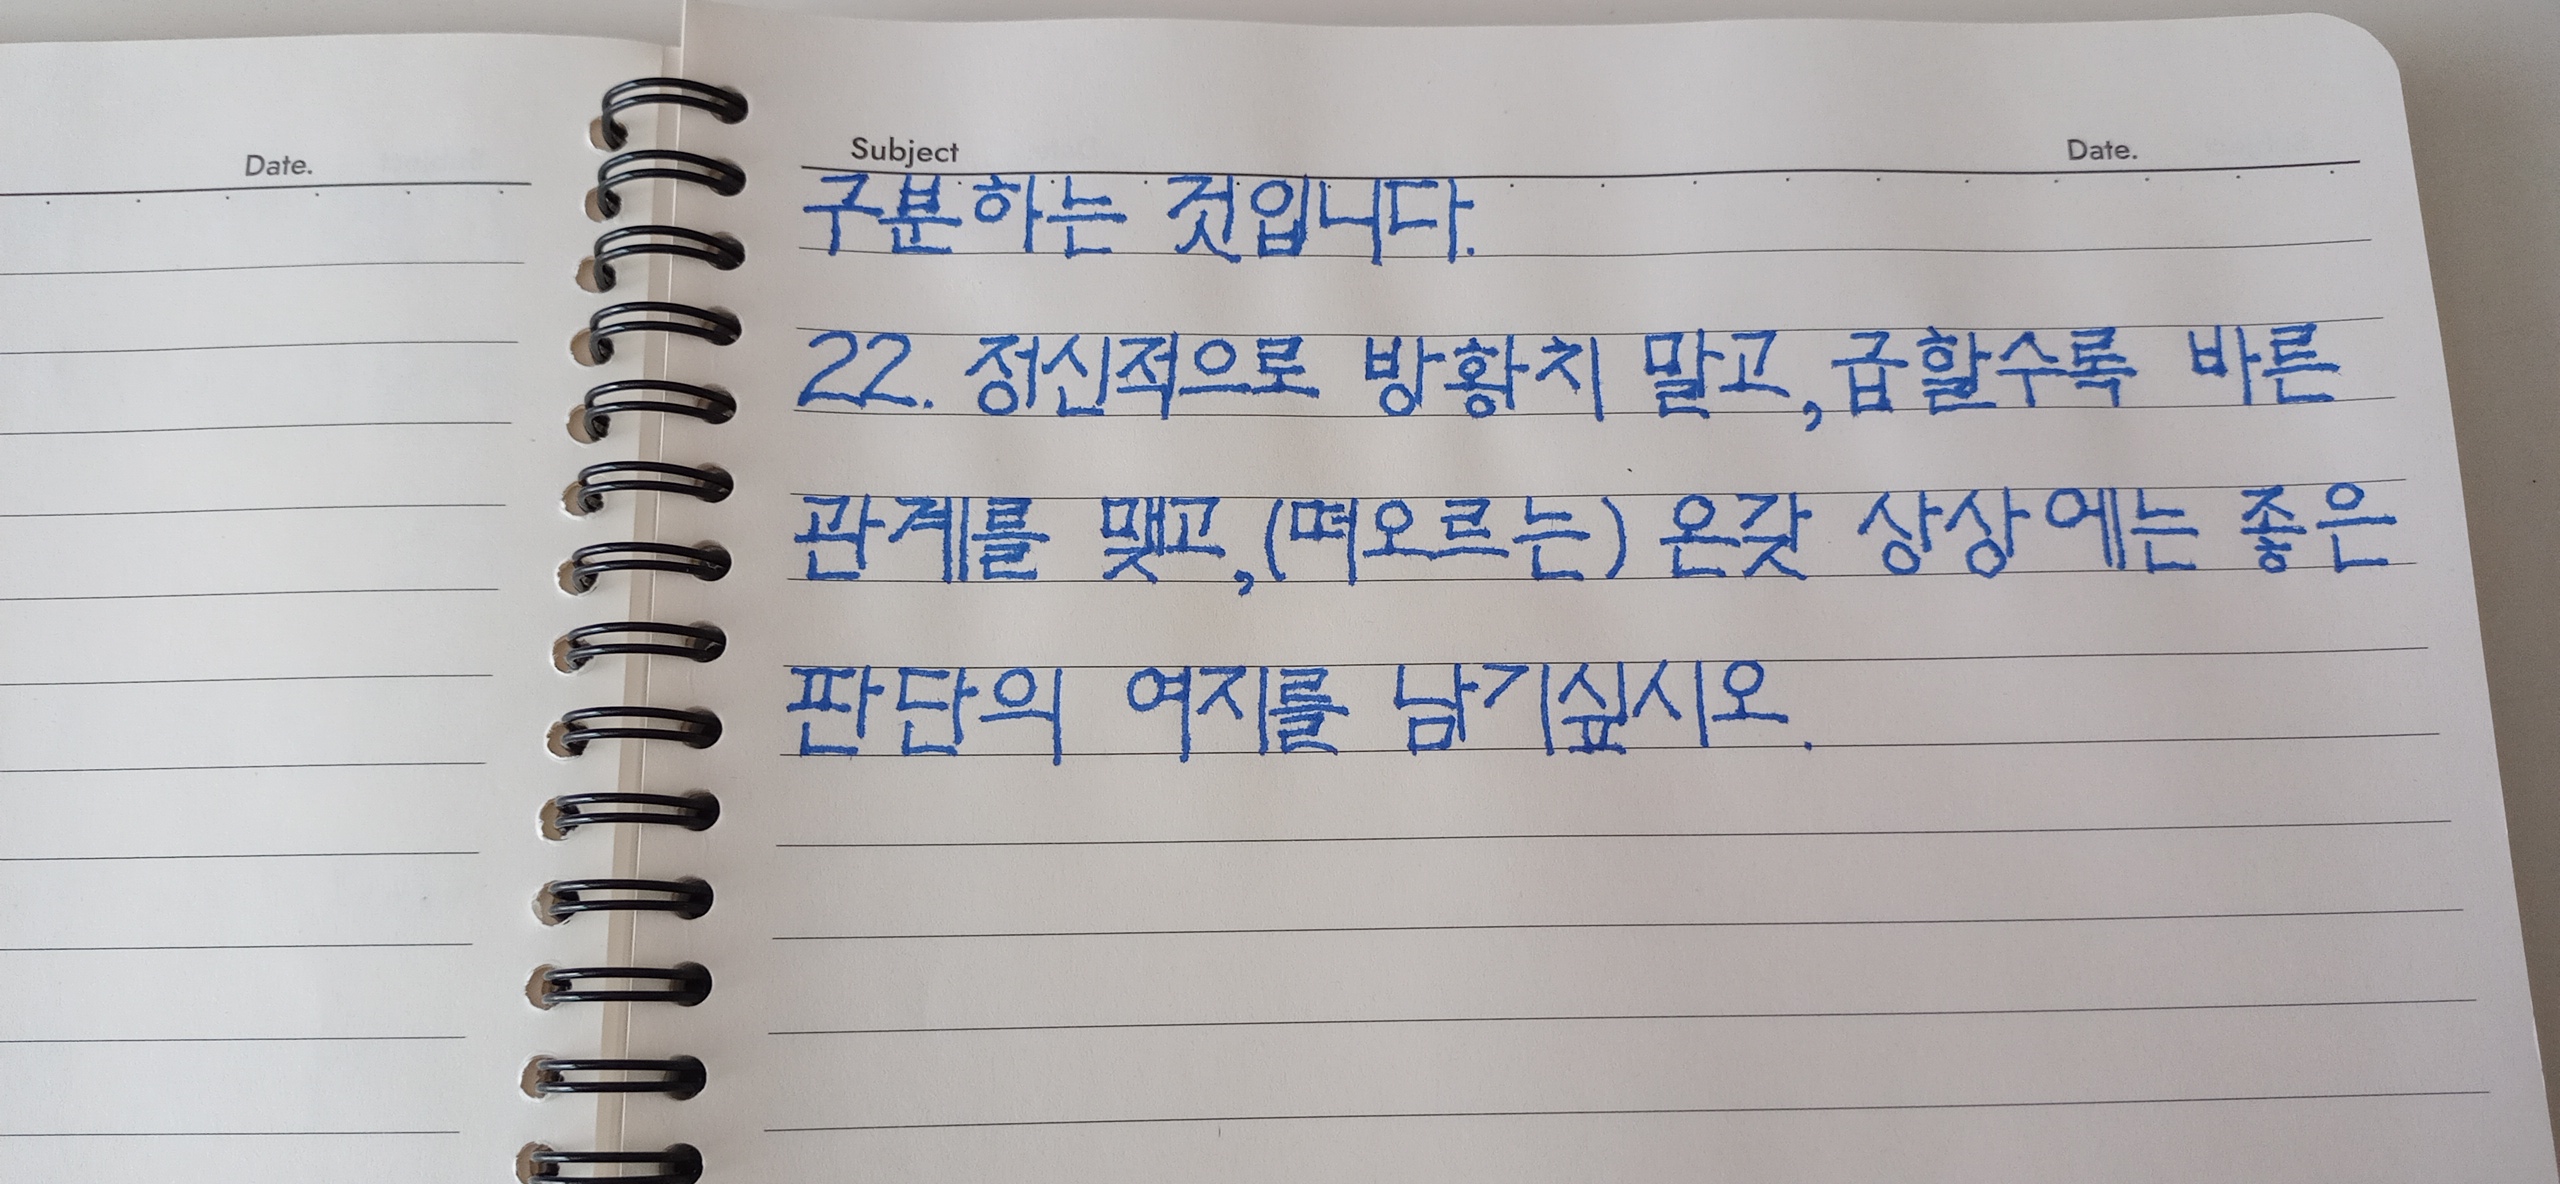 Date.
Subject Date.
구분하는 것입니다.
22. 정신적으로 방황치 말고, 급할수록 바른
관계를 맺고, (떠오르는) 온갖 상상에는 좋은
판단의 여지를 남기싶시오.